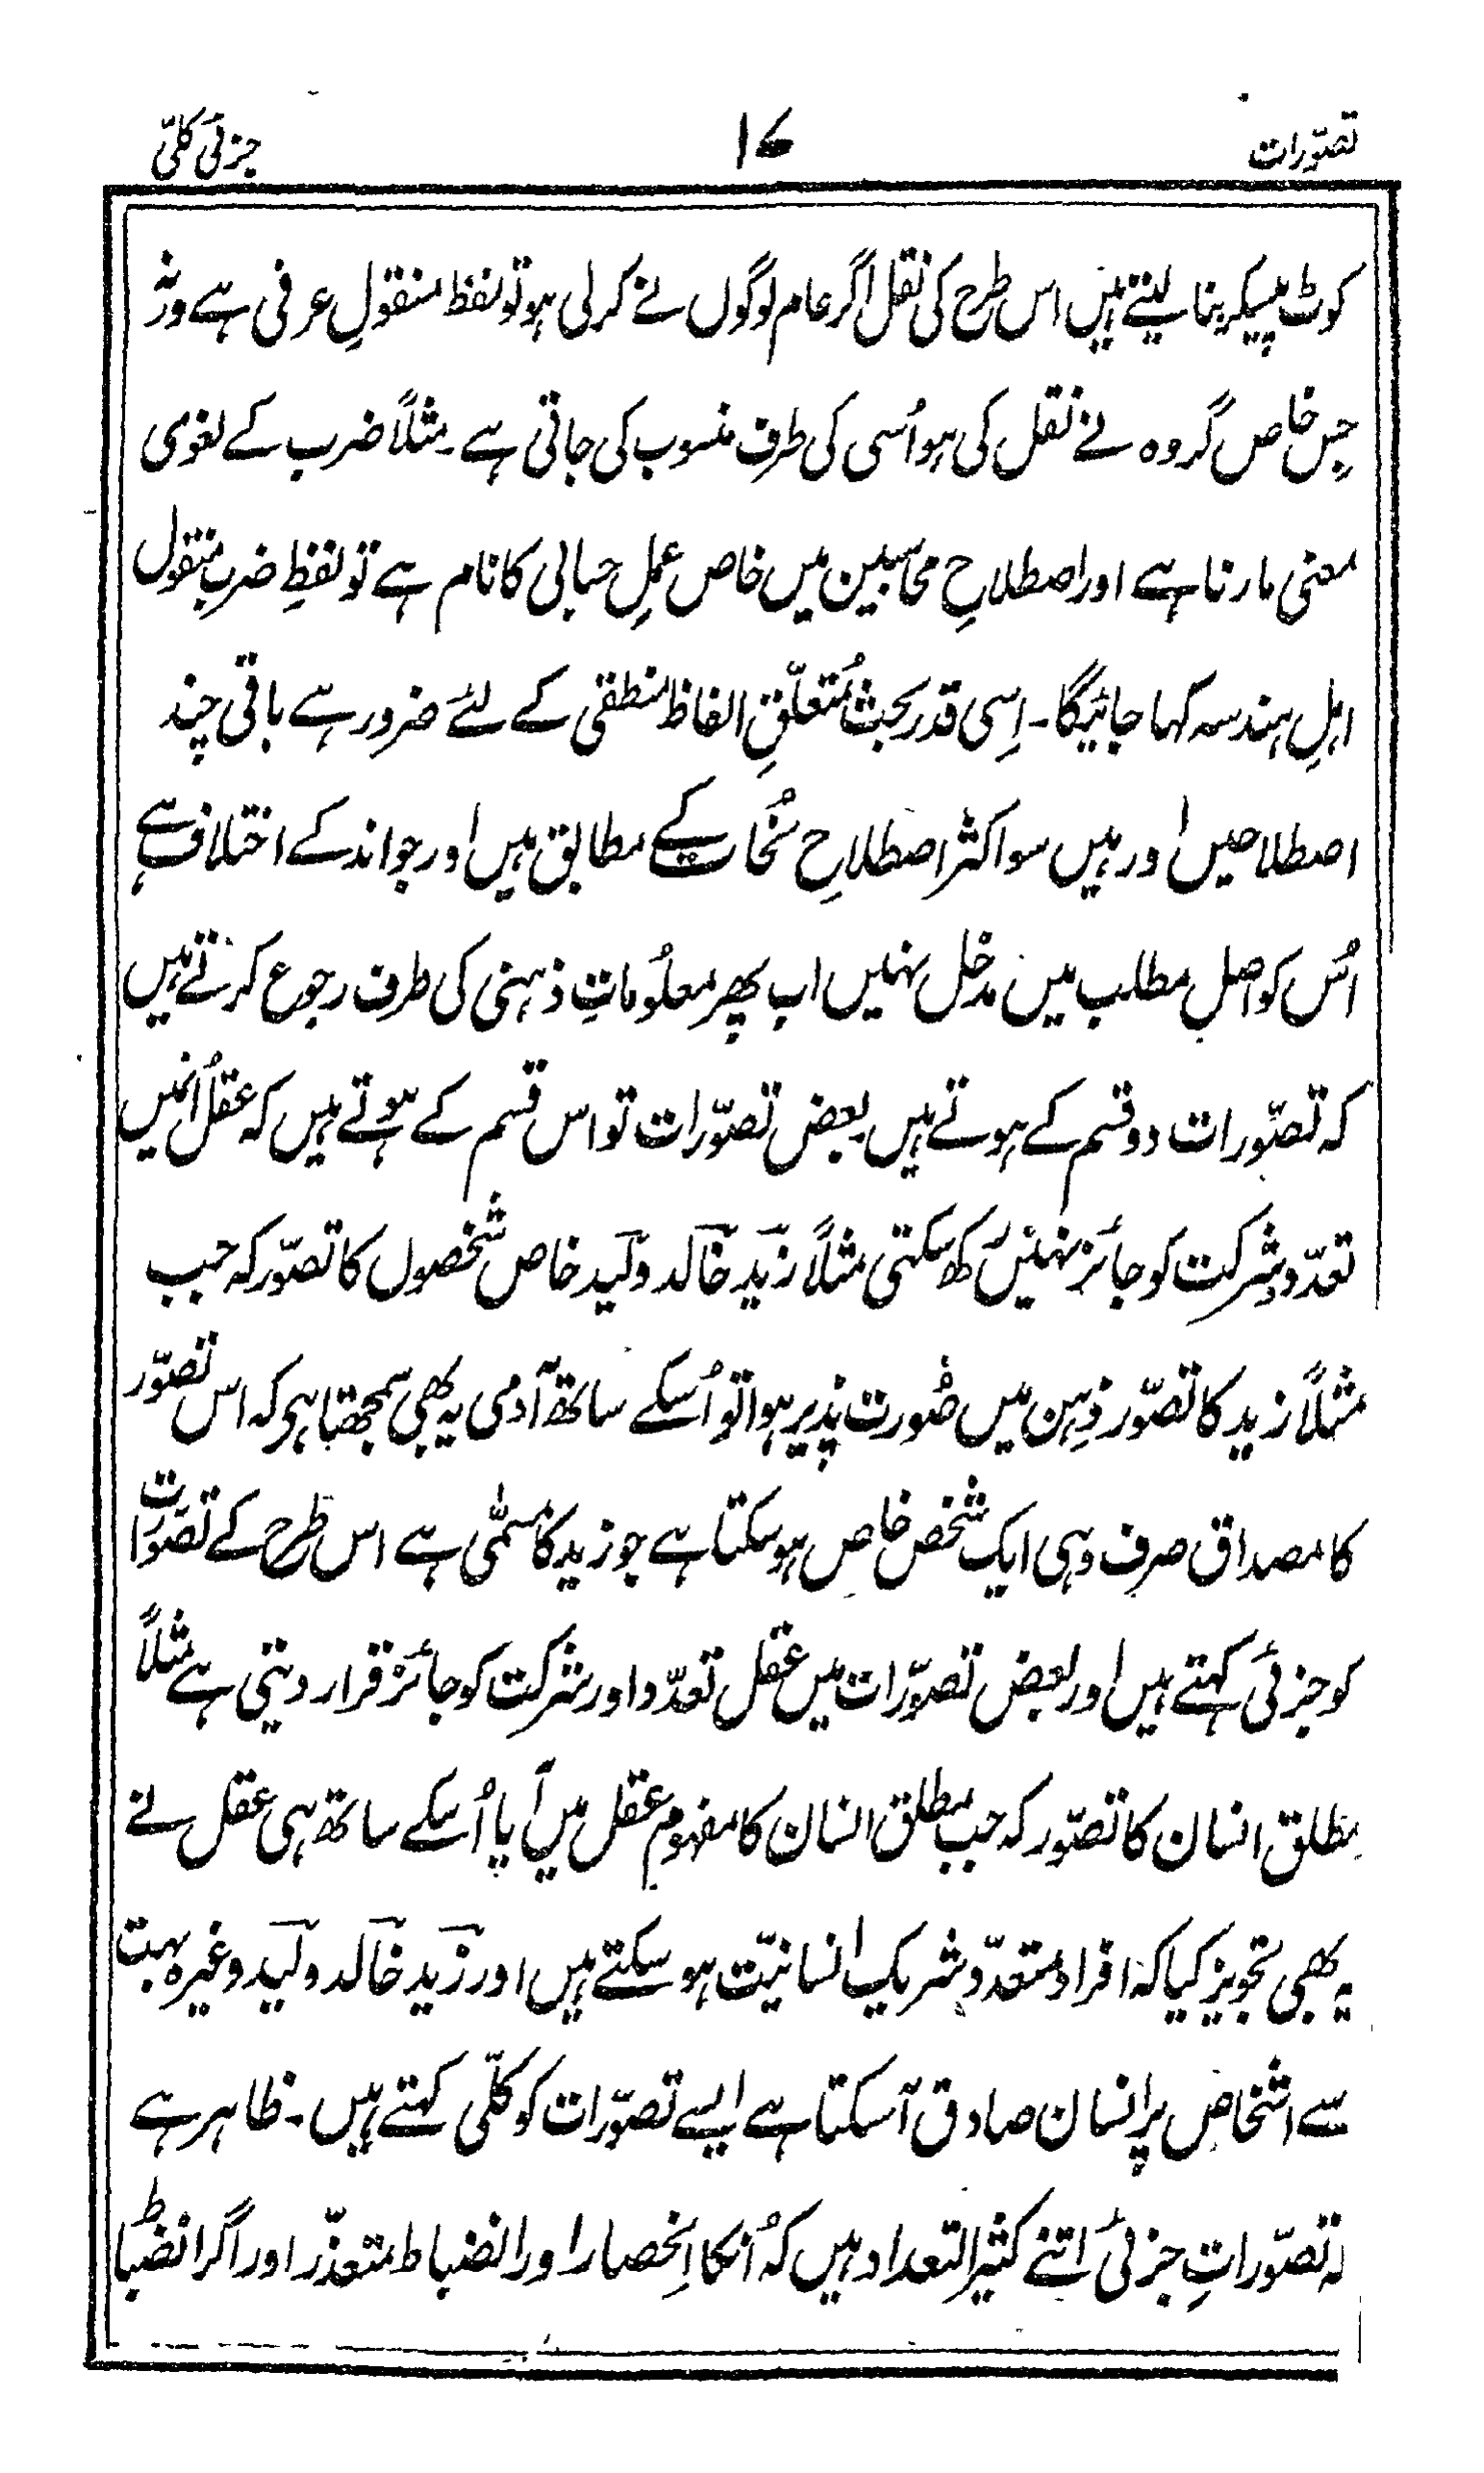 تصوّرات ۱۷ جزئی کلّی
کوٹ پیسکر بنا لیتے ہیں اس طرح کی نقل اگر عام لوگوں نے کر لی ہو تو لفظ منقولِ عرفی ہے ورنہ
جس خاص گروہ نے نقل کی ہو اُسی کی طرف منسوب کی جاتی ہے۔ مثلاً ضرب کے لغوی
معنی مارنا ہے اور اصطلاحِ محاسبین میں خاص عملِ حسابی کا نام ہے تو لفظِ ضرب منقول
اہلِ ہندسہ کہا جائیگا۔ اِسی قدر بحث مُتعلّقِ الفاظ منطقی کے لئے ضرور ہے باقی چند
اصطلاحیں اور ہیں سو اکثر اصطلاحِ نُحات کے مطابق ہیں اور جو اند کے اختلاف ہے
اُس کو اصل مطلب میں مدخل نہیں اب پھر معلُوماتِ ذہنی کی طرف رجوع کرتے ہیں
کہ تصوّرات دو قسم کے ہوتے ہیں بعض تصوّرات تو اس قسم کے ہوتے ہیں کہ عقل اُنمیں
تعدّد و شرکت کو جائز نہیں رکھ سکتی مثلاً زید خالد ولید خاص شخصوں کا تصوّر کہ جب
مثلاً زید کا تصوّر ذہن میں صُورت پذیر ہوا تو اُسکے ساتھ آدمی یہ بھی سمجھتا ہی کہ اس تصوّر
کا مصداق صرف وہی ایک شخص خاص ہو سکتا ہے جو زید کا مسمّٰی ہے اس طرح کے تصوّرات
کو جزئی کہتے ہیں اور بعض تصوّرات میں عقل تعدّد اور شرکت کو جائز قرار دیتی ہے مثلاً
مطلق انسان کا تصوّر کہ جب مطلق انسان کا مفہوم عقل میں آیا اُسکے ساتھ ہی عقل نے
یہ بھی تجویز کیا کہ افراد متعدّد شریک انسانیّت ہو سکتے ہیں اور زید خالد ولید وغیرہ بہت
سے اشخاص پر انسان صادق آ سکتا ہے ایسے تصوّرات کو کلّی کہتے ہیں۔ ظاہر ہے
کہ تصوّراتِ جزئی اتنے کثیر التعداد ہیں کہ اُنکا اِنحصار اور انضباط متعذّر اور اگر انضباط